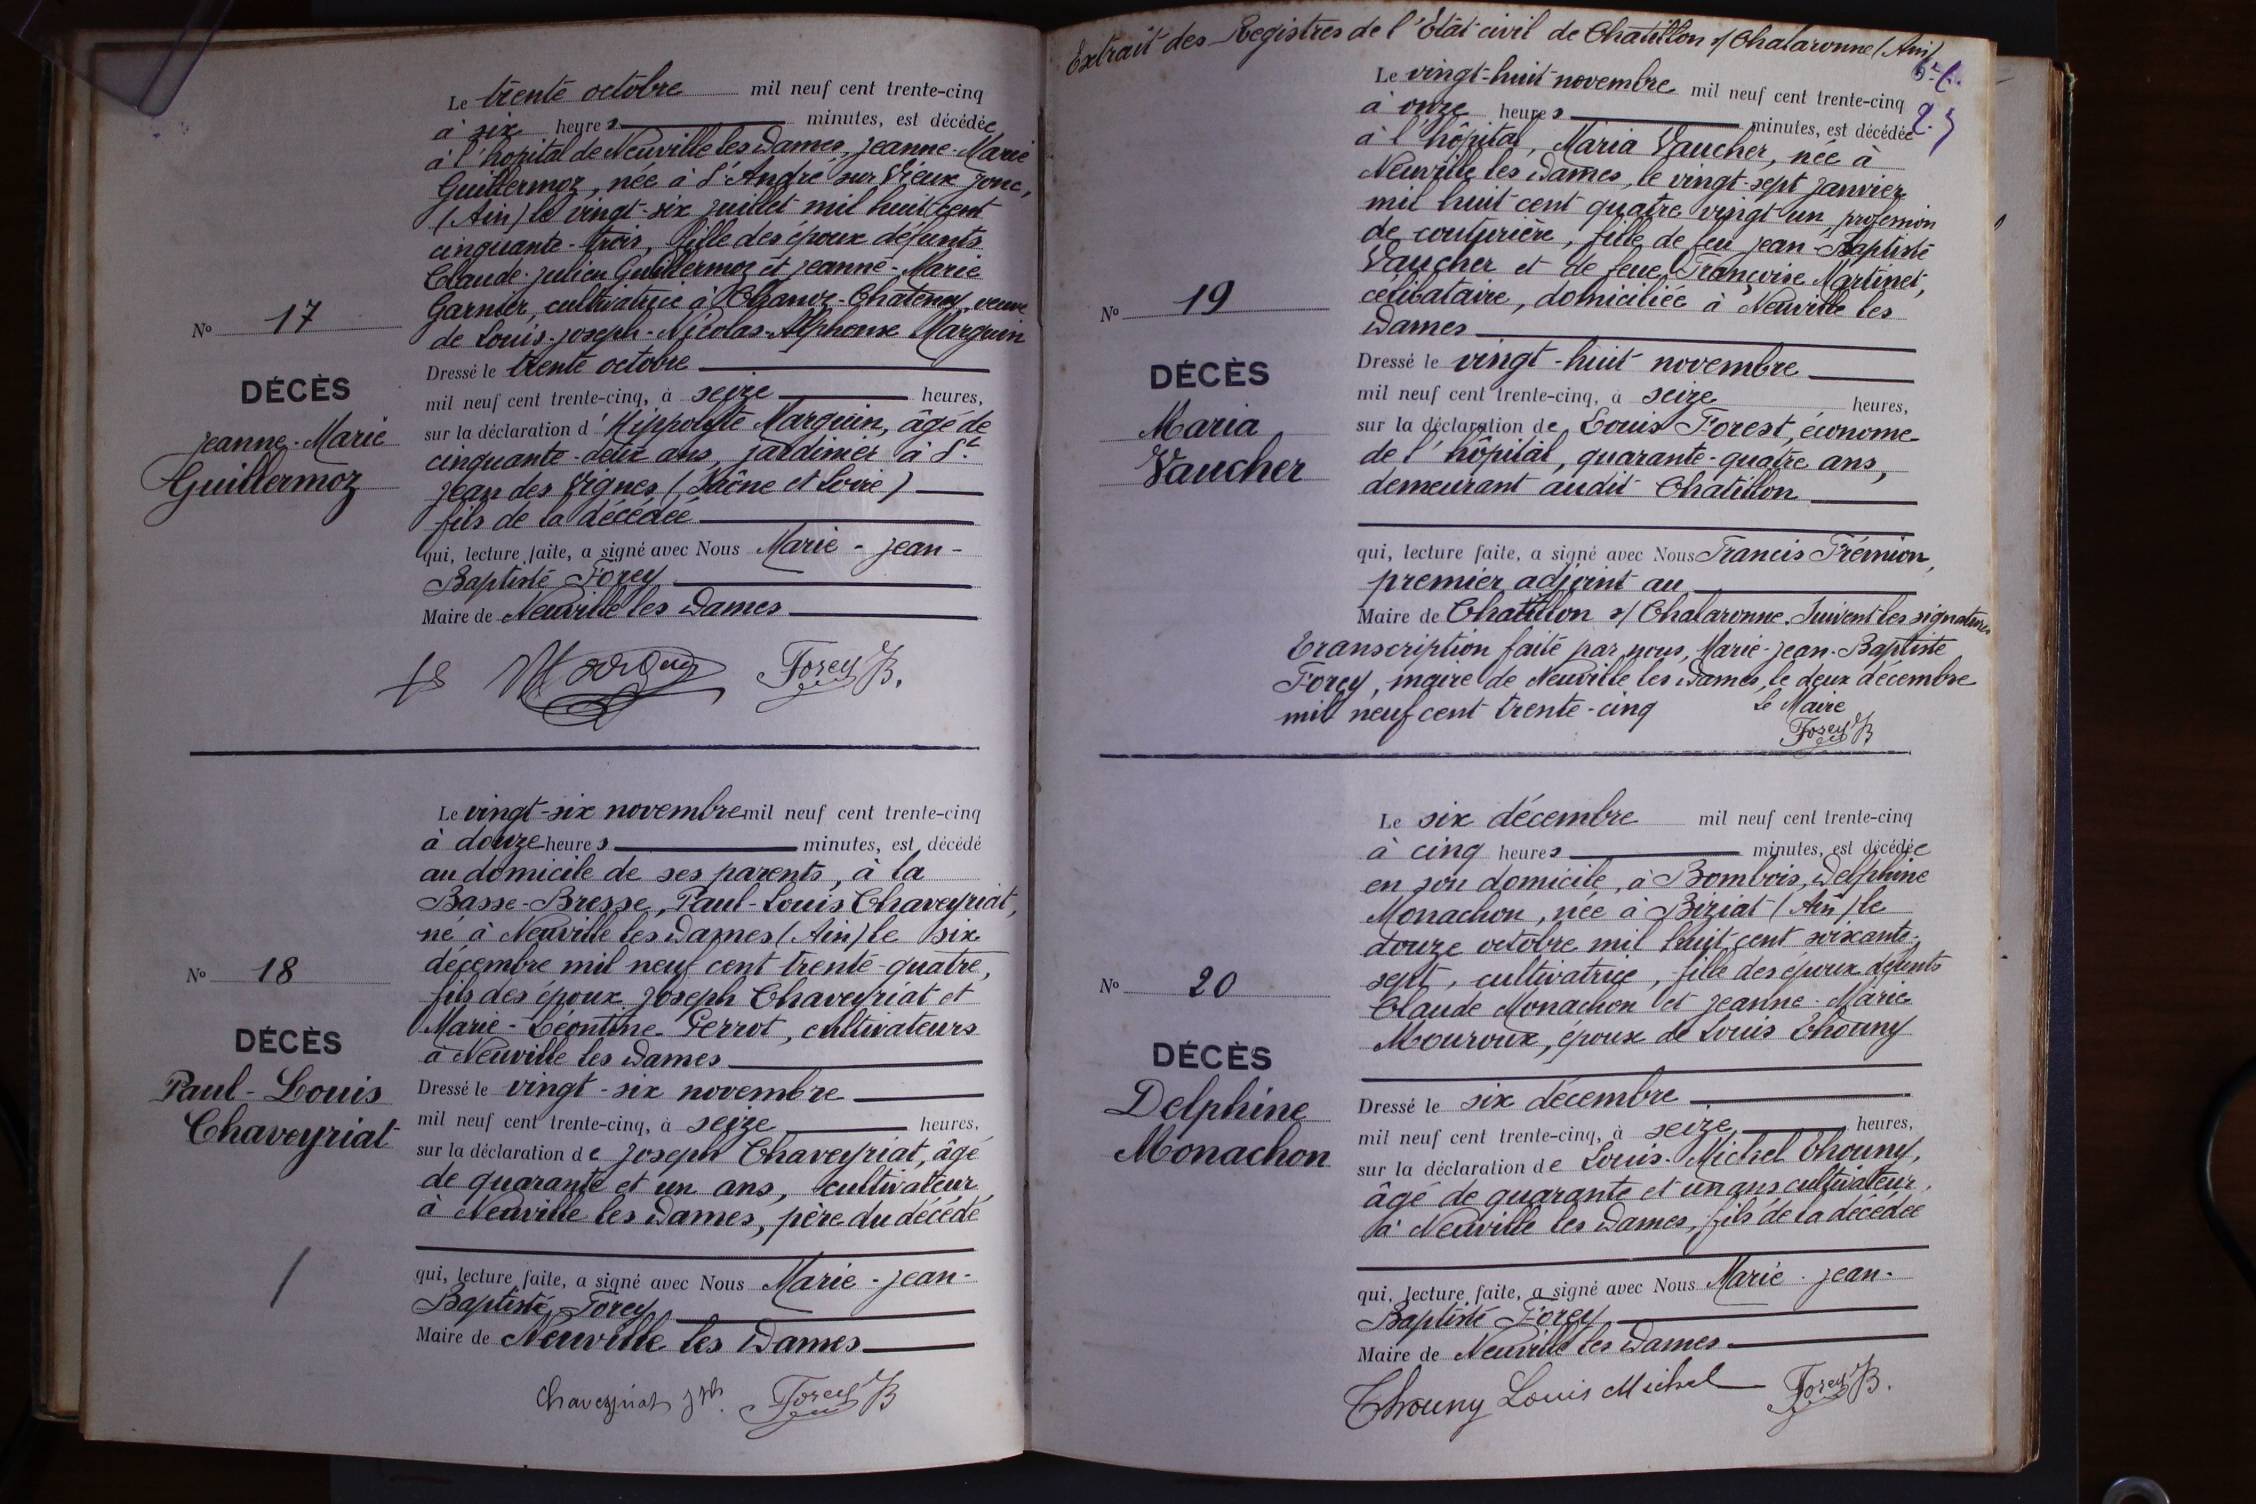 Le trente octobre mil neuf cent trente-cinq
à six heures minutes, est décédée
à l'hopital de Neuville les Dames, Jeanne-Marie
Guillermoz, née à St André sur Vieux Jonc,
(Ain) le vingt-six juillet mil huit cent
cinquante-trois, fille des époux défunts
Claude-Julien Guillermoz et Jeanne-Marie
Garnier, cultivatrice à Chanoz-Châtenay, veuve
de Louis-Joseph-Nicolas-Alphonse Marguin
Dressé le trente octobre
mil neuf cent trente-cinq, à seize heures,
sur la déclaration d'Hippolyte Marguin, âgé de
cinquante-deux ans, jardinier à St
Jean des Vignes (Saône et Loire)
fils de la décédée
qui, lecture faite, a signé avec Nous Marie-Jean-
Baptiste Forey
Maire de Neuville les Dames
Forey B.
No 17
DÉCÈS
Jeanne-Marie
Guillermoz
Le vingt-six novembre mil neuf cent trente-cinq
à douze heures minutes, est décédé
au domicile de ses parents, à la
Basse-Bresse, Paul-Louis Chaveyriat,
né à Neuville les Dames (Ain) le six
décembre mil neuf cent trente-quatre,
fils des époux Joseph Chaveyriat et
Marie-Léontine Perrot, cultivateurs
à Neuville les Dames
Dressé le vingt-six novembre
mil neuf cent trente-cinq, à seize heures,
sur la déclaration de Joseph Chaveyriat, âgé
de quarante et un ans, cultivateur
à Neuville les Dames, père du décédé
qui, lecture faite, a signé avec Nous Marie-Jean-
Baptiste Forey
Maire de Neuville les Dames
Chaveyriat Jph. Forey B
No 18
DÉCÈS
Paul-Louis
Chaveyriat
Extrait des Registres de l'Etat civil de Chatillon s/ Chalaronne (Ain)
Le vingt-huit novembre mil neuf cent trente-cinq
à onze heures minutes, est décédée
à l'hôpital, Maria Vaucher, née à
Neuville les Dames, le vingt-sept janvier
mil huit cent quatre vingt un, profession
de couturière, fille de feu Jean-Baptiste
Vaucher et de feue Françoise Martinet,
célibataire, domiciliée à Neuville les
Dames
Dressé le vingt-huit novembre
mil neuf cent trente-cinq, à seize heures,
sur la déclaration de Louis Forest, économe
de l'hôpital, quarante-quatre ans,
demeurant audit Chatillon
qui, lecture faite, a signé avec Nous Francis Frémion,
premier adjoint au
Maire de Chatillon s/ Chalaronne. Suivent les signatures
Transcription faite par nous, Marie-Jean-Baptiste
Forey, maire de Neuville les Dames, le deux décembre
mil neuf cent trente-cinq Le Maire
Forey B
No 19
DÉCÈS
Maria
Vaucher
Le six décembre mil neuf cent trente-cinq
à cinq heures minutes, est décédée
en son domicile, à Bombois, Delphine
Monachon, née à Biziat (Ain) le
douze octobre mil huit cent soixante-
sept, cultivatrice, fille des époux défunts
Claude Monachon et Jeanne-Marie
Mouroux, époux de Louis Thouny
Dressé le six décembre
mil neuf cent trente-cinq, à seize heures,
sur la déclaration de Louis-Michel Thouny,
âgé de quarante et un ans cultivateur
à Neuville les Dames, fils de la décédée
qui, lecture faite, a signé avec Nous Marie-Jean-
Baptiste Forey
Maire de Neuville les Dames
Thouny Louis Michel Forey B.
No 20
DÉCÈS
Delphine
Monachon